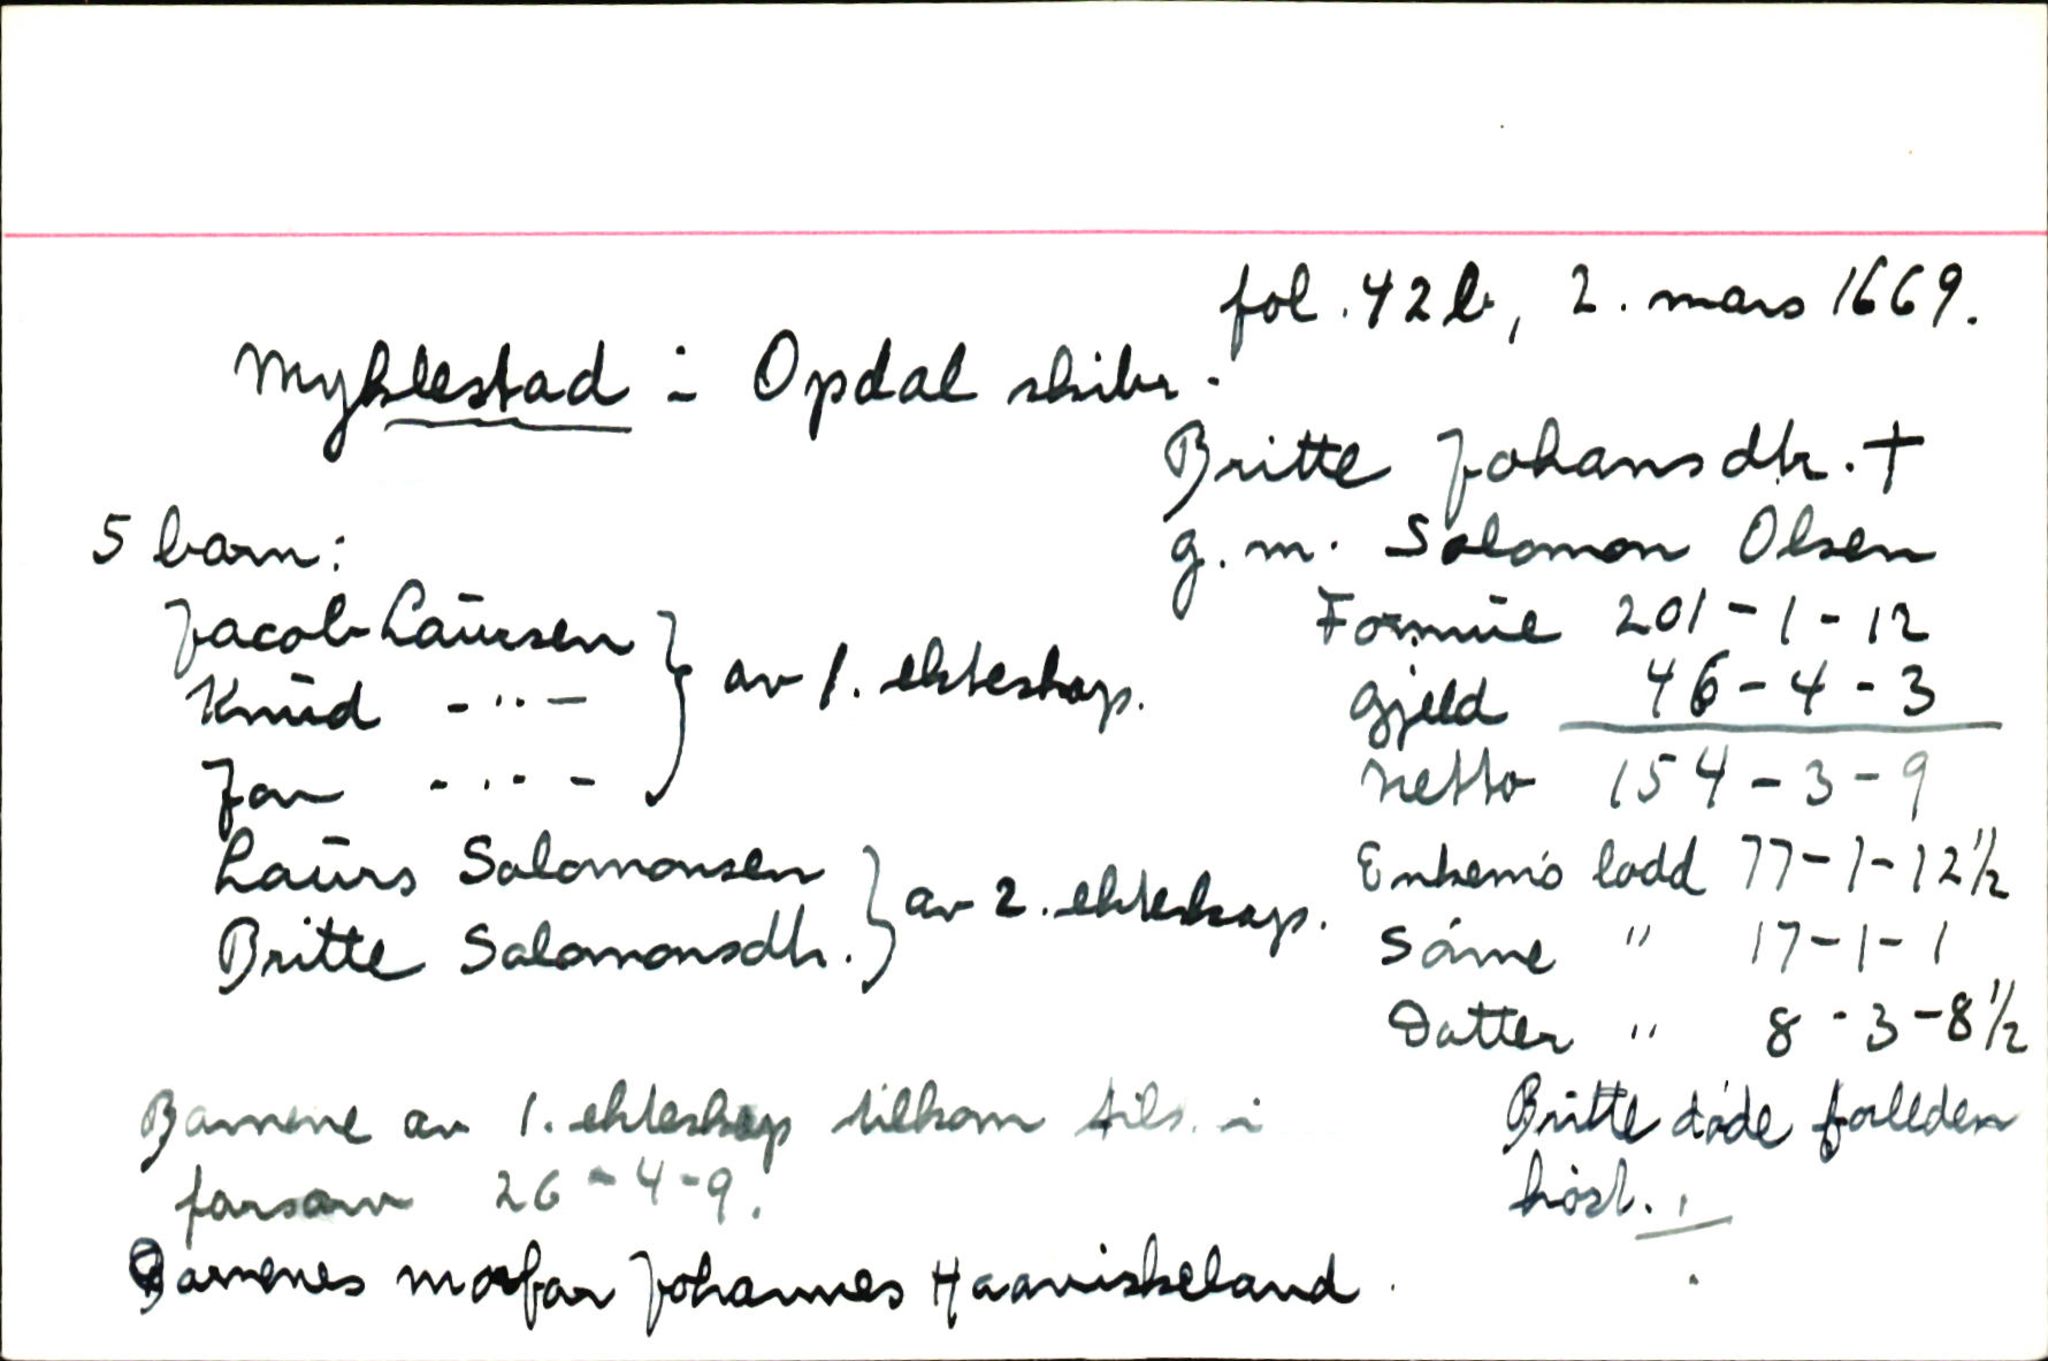 fol. 42 b, 2. mars 1669.
Myklestad i Opdal skibr.
Britte Johansdtr. †
g. m. Salomon Olsen
Formue 201 - 1 - 12
Gjeld 46 - 4 - 3
Netto 154 - 3 - 9
Enkem's lodd 77 - 1 - 12 1/2
Sønne " 17 - 1 - 1
Datter " 8 - 3 - 8 1/2
Britte døde forleden
høst.
5 barn:
Jacob Laursen
Knud - " -
Jon - " -
} av 1. ekteskap.
Laurs Salomonsen
Britte Salomonsdtr.
} av 2. ekteskap.
Barnene av 1. ekteskap tilkom tils. i
farsarv 26 - 4 - 9.
Barnenes morfar Johannes Haaviskeland.